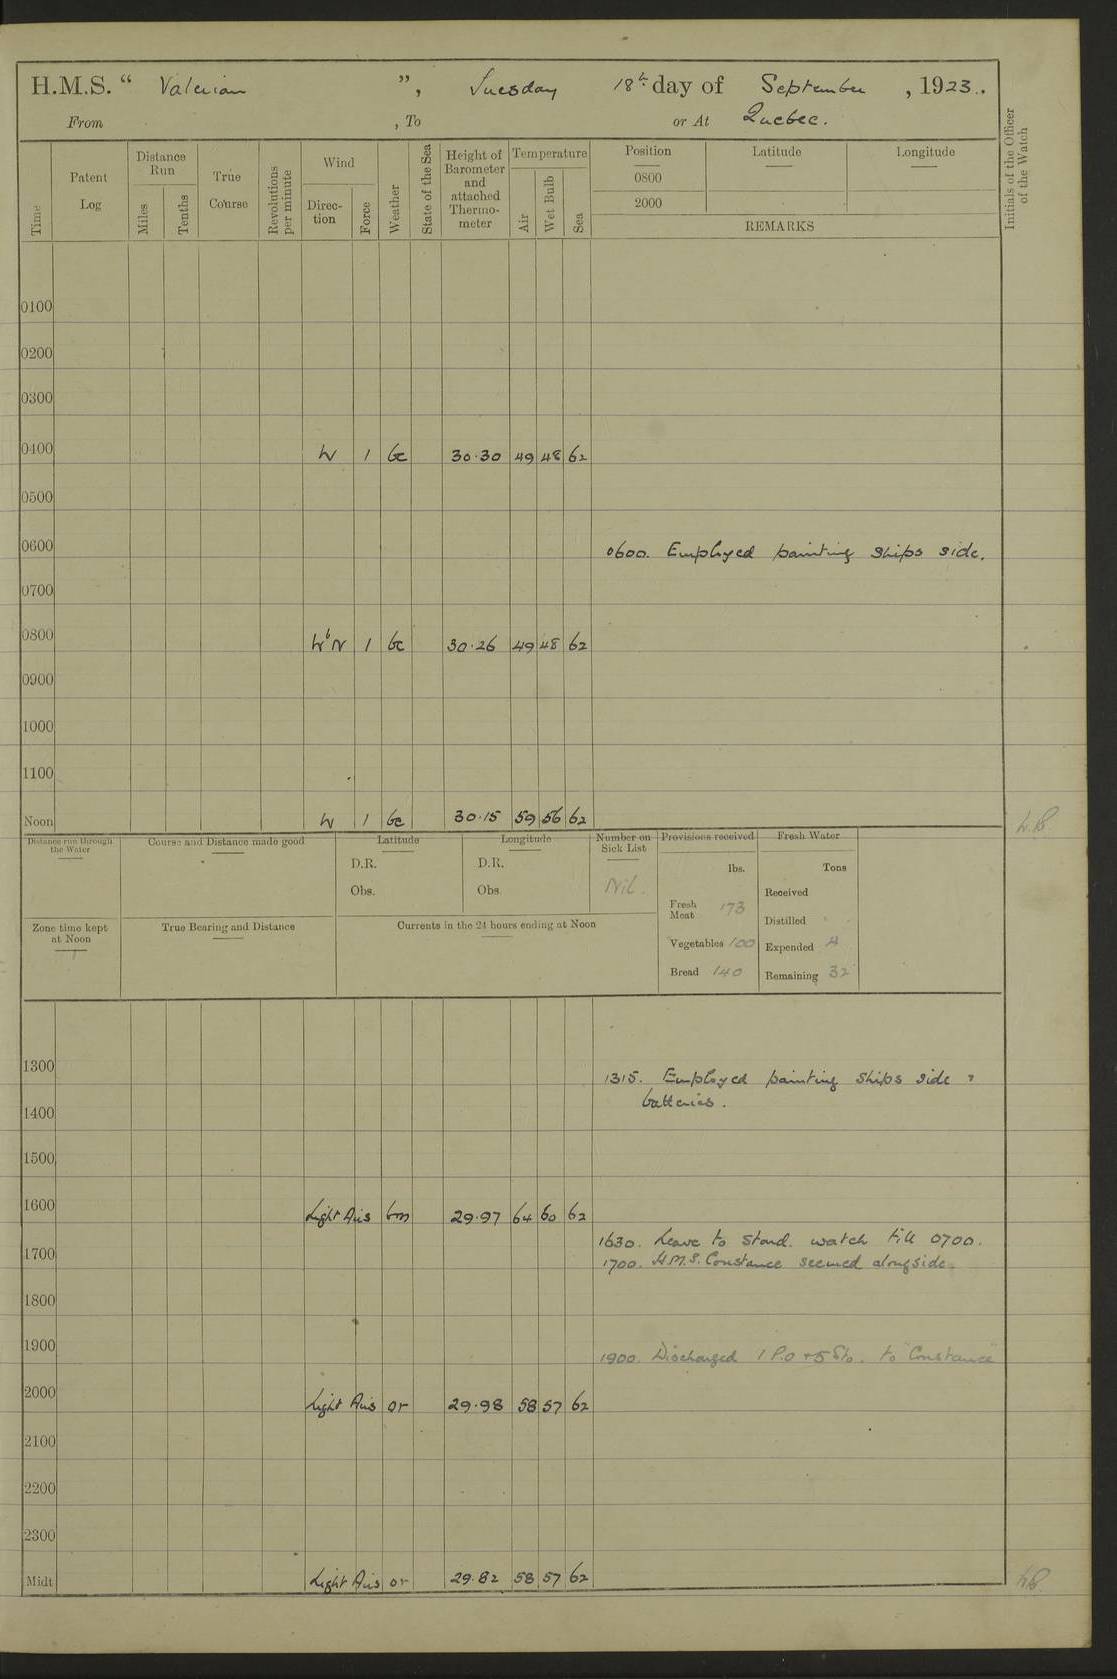 H.M.S. “ Valerian ”, Tuesday 18th day of September , 1923.
From , To or At Quebec.
Time Patent Log Distance Run Miles Tenths True Course Revolutions per minute Wind Direc- tion Force Weather State of the Sea Height of Barometer and attached Thermo- meter Temperature Air Wet Bulb Sea Position Latitude Longitude Initials of the Officer of the Watch
0800
2000
REMARKS
0100
0200
0300
0400 W 1 bc 30.30 49 48 62
0500
0600 0600. Employed painting ships side.
0700
0800 W b N 1 bc 30.26 49 48 62
0900
1000
1100
Noon W 1 bc 30.15 59 56 62
Distance run through the Water Course and Distance made good Latitude Longitude Number on Sick List Provisions received Fresh Water
D.R. D.R. lbs. Tons
Obs. Obs. Nil. Received
Fresh Meat 173
Distilled
Zone time kept at Noon True Bearing and Distance Currents in the 24 hours ending at Noon
Vegetables 100 Expended 4
Bread 140 Remaining 32
1300 1315. Employed painting ships side &
1400 batteries.
1500
1600 Light Airs bm 29.97 64 60 62
1630. Leave to stand. watch till 0700.
1700 1700. H.M.S. Constance secured alongside.
1800
1900 1900. Discharged 1 P.O + 5 Sto. to "Constance"
2000 Light Airs or 29.98 58 57 62
2100
2200
2300
Midt Light Airs or 29.82 58 57 62